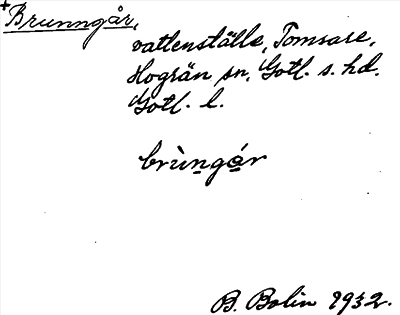 +Brunngår,
vattenställe, Tomsase,
Hogrän sn, Gotl. s. hd.
Gotl. l.
brùngár
B. Bolin 1932.